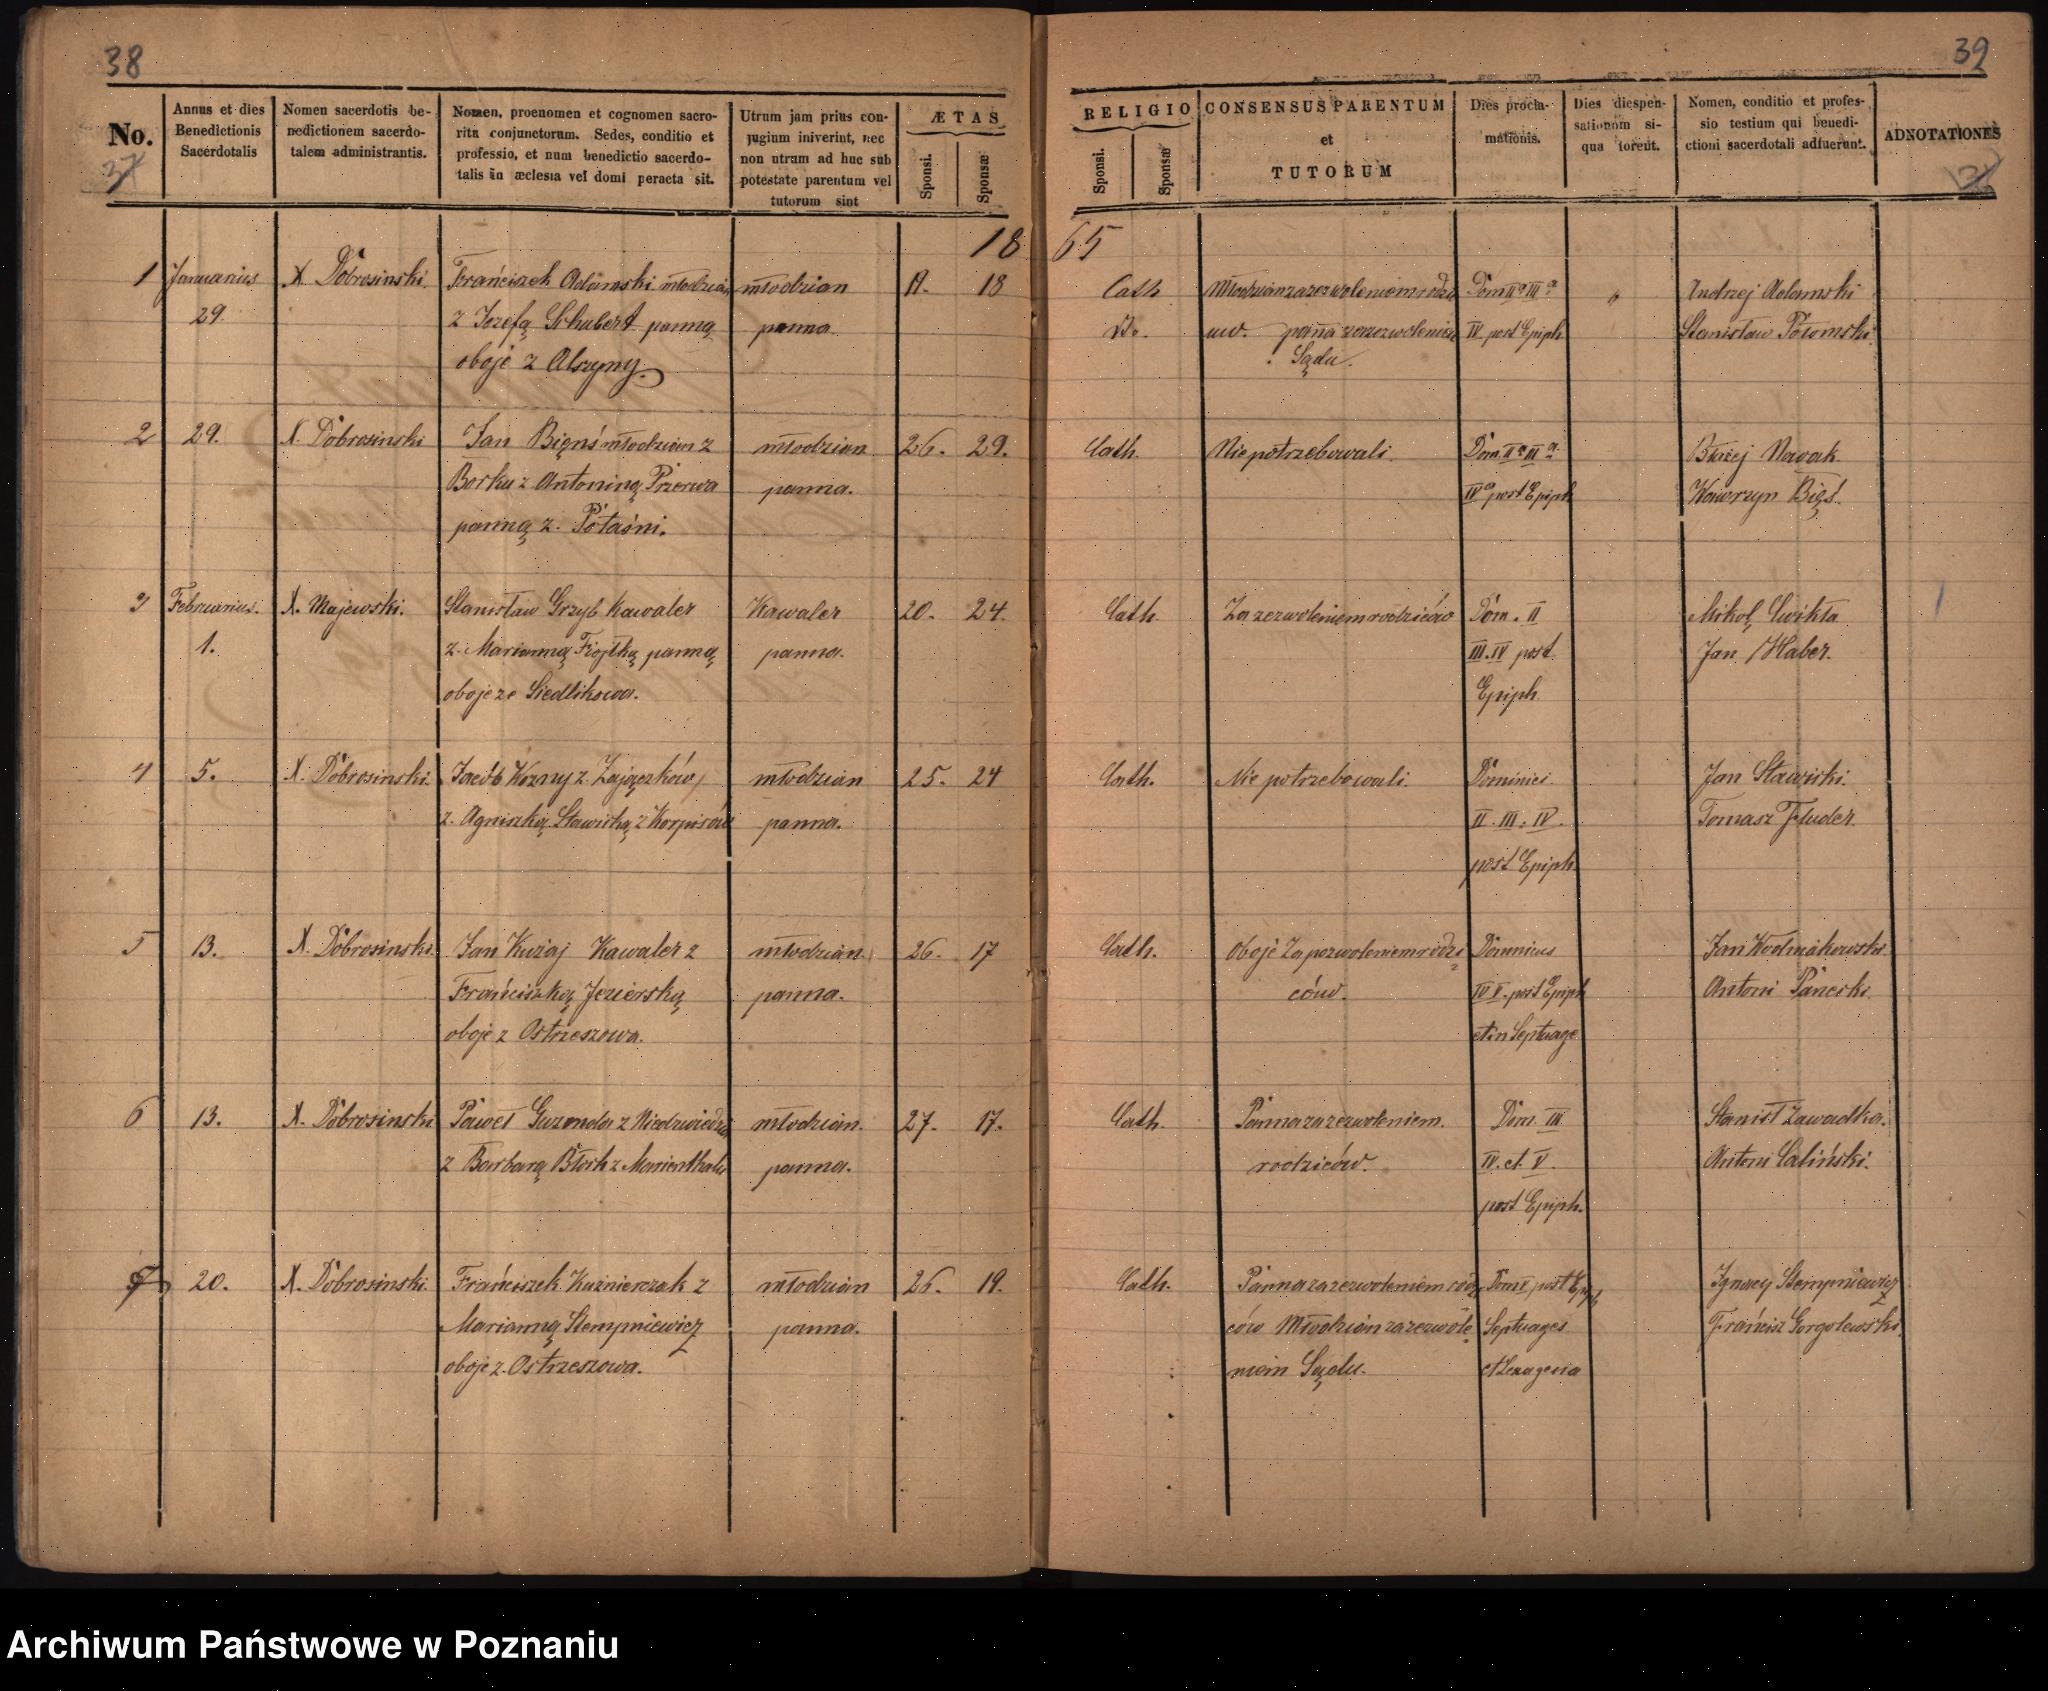 38
39
No.
Annus et dies
Benedictionis
Sacerdotalis
Nomen sacerdotis be-
nedictionem sacerdo-
talem administrantis.
Nomen, proenomen et cognomen sacro-
ritu conjunctorum. Sedes, conditio et
professio, et num benedictio sacerdo-
talis in æclesia vel domi peracta sit.
Utrum jam prius con-
jugium iniverint, nec
non utrum ad huc sub
potestate parentum vel
tutorum sint
ÆTAS
Sponsi.
Sponsæ
RELIGIO
Sponsi.
Sponsæ
CONSENSUS PARENTUM
et
TUTORUM
Dies procla-
mationis.
Dies diespen-
sationum si-
qua forent.
Nomen, conditio et profes-
sio testium qui benedi-
ctioni sacerdotali adfuerunt.
ADNOTATIONES
37
1865
1
Januarius
29
X Dobrosinski.
Franciszek Adamski młodzian
z Jozefą Schubert panną
oboje z Olszyny.
młodzian
panna
19. 18
Cath
Do.
Młodzian za zezwoleniem rodzi
ców. panna za zezwoleniem
Sądu.
Dom II a III a
IV post Epiph
Andrzej Adamski
Stanisław Potomski
2
29.
X. Dobrosinski
Jan Bięś młodzian z
Borku z Antoniną Przerwa
panną z. Potaśni.
młodzian
panna.
26. 29.
Cath.
Nie potrzebowali.
Dom. II a III a.
IV a post Epiph
Błażej Nowak
Wawrzyn Bięś.
3
Februarius.
1.
X. Majewski.
Stanisław Grzyb Kawaler
z. Marianną Fojtką panną
oboje ze Siedlikowa.
Kawaler
panna.
20. 24.
Cath.
Za zezwoleniem rodziców
Dom. II
III. IV post.
Epiph.
Mikoł Cwikła
Jan Haber.
4
5.
X. Dobrosinski.
Jacób Kozny z. Zajączków
z. Agniszką Sławicką z Korpisów
młodzian
panna.
25. 24
Cath.
Nie potrzebowali.
Dominici
II. III. IV.
post Epiph.
Jan Sławicki.
Tomasz Fluder.
5
13.
X. Dobrosinski.
Jan Kuzaj Kawaler z
Franciszką Jezierską
oboje z Ostrzeszowa.
młodzian.
panna.
26. 17
Cath.
Oboje Za pozwoleniem rodzi
ców.
Dominius
IV V. post Epiph
et in Septuage
Jan Wodniakowski
Antoni Panecki.
6
13.
X. Dobrosinski.
Paweł Guzenda z Niedzwiedzia
z Barbarą Błock z Marienthalu
młodzian.
panna.
27. 17.
Cath.
Panna za zezwoleniem.
rodziców.
Dom. III
IV. et. V.
post Epiph.
Stanisł Zawadka.
Antoni Caliński.
7
20.
X. Dobrosinski.
Franciszek Kuznierczak z
Marianną Stempniewicz
oboje z. Ostrzeszowa.
młodzian
panna.
26. 19.
Cath.
Panna za zezwoleniem rodzi
ców Młodzian za zezwole
niem Sądu.
Dom V post Epiph
Septuages
et Sexagesia
Ignacy Stempniewicz
Francisz Gorgolewski
Archiwum Państwowe w Poznaniu